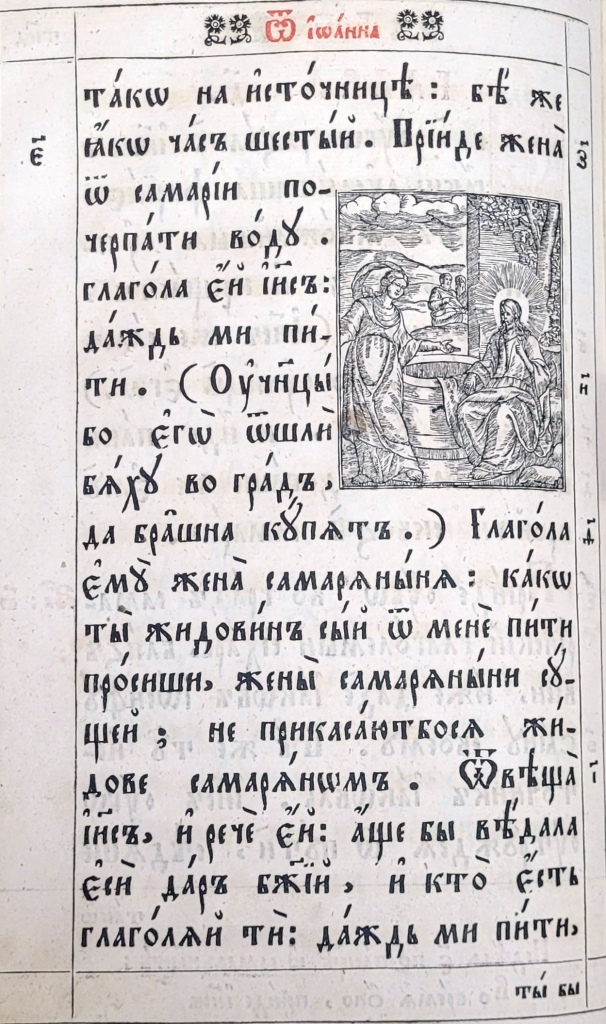 Ѿ іѡа́нна
та́кѡ на и҆сто́чницѣ: бѣ́ же
ꙗ҆́кѡ ча́съ шесты́й. Прїи́де жена̀
ѿ самарі́и по-
черпа́ти во́дꙋ.
глаго́ла є҆́й і҆и҃съ:
да́ждь ми пи́-
ти. (Оу҆чн҃цы́
бо є҆гѡ̀ ѿшлѝ
бѧ́хꙋ во гра́дъ,
да бра̑шна кꙋ́пѧтъ) Глаго́ла
є҆мꙋ̀ жена̀ самарѧны́нѧ: ка́кѡ
ты̀ жидови́нъ сы́й ѿ менє̀ пи́ти
про́сиши, жены̀ самарѧны́ни сꙋ́-
щей; не прикаса́ютбосѧ жи́-
дове самарѧ́нѡмъ. Ѿвѣща̀
і҆и҃съ, и҆ речѐ є҆́й: а҆́ще бы вѣ́дала
є҆сѝ да́ръ бж҃їй, и҆ кто̀ є҆́сть
глаго́лѧй тѝ: да́ждь ми пи́ти,
ты̀ бы
є҃і
з҃
и҃
ѳ҃
і҃